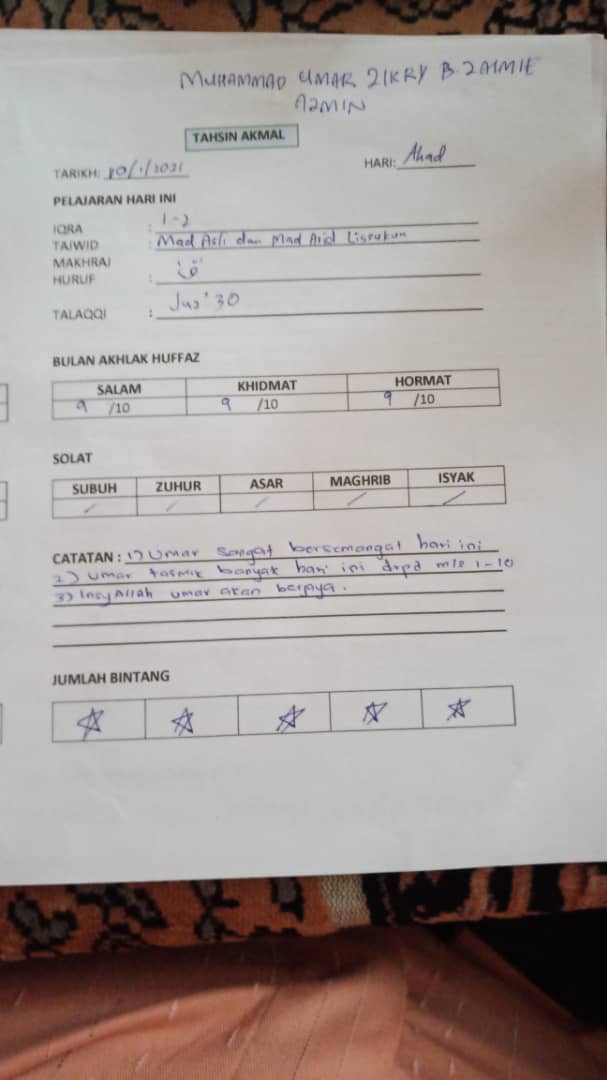 MUHAMMAD UMAR ZIKRY B. ZAIMIE
AZMIN
TAHSIN AKMAL
TARIKH: 10/1/2021 HARI: Ahad
PELAJARAN HARI INI
IQRA : 1-2
TAJWID : Mad Asli dan Mad Arid Lisukun
MAKHRAJ
HURUF :
TALAQQI : Juz' 30
BULAN AKHLAK HUFFAZ
SALAM KHIDMAT HORMAT
9 /10 9 /10 9 /10
SOLAT
SUBUH ZUHUR ASAR MAGHRIB ISYAK
CATATAN : 1) Umar sangat bersemangat hari ini
2) Umar tasmik banyak hari ini drpd m/s 1-10
3) InsyAllah umar akan berjaya.
JUMLAH BINTANG